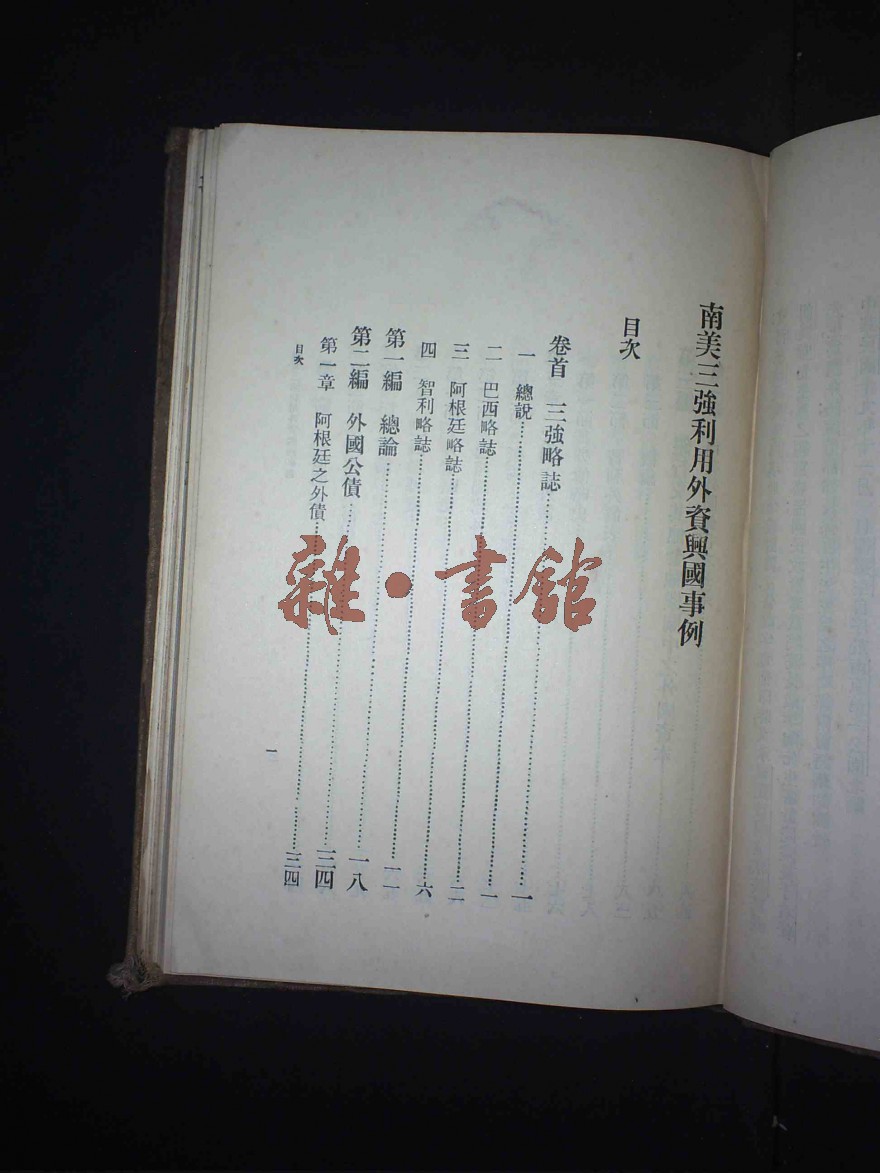 南美三強利用外資興國事例
目次
卷首 三強略誌……一
一 總說……一
二 巴西略誌……二
三 阿根廷略誌……六
四 智利略誌……一一
第一編 總論……一八
第二編 外國公債……三四
第一章 阿根廷之外債……三四
目次 一
雜·書館